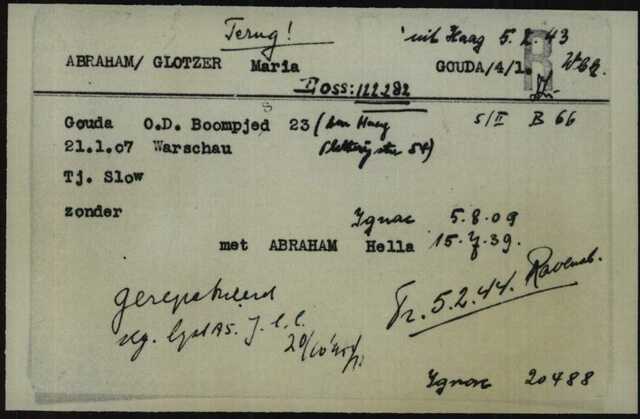 Terug! uit Haag 5.2.43
ABRAHAM/ GLOTZER Maria GOUDA/4/1. R
Doss: 122282
Gouda O.D. Boompjes 23 (den Haag S/II B 66
21.1.07 Warschau
Tj. Slow
zonder Ignac 5.8.09
met ABRAHAM Hella 15.7.39.
gerepatrieerd Tr. 5.2.44. Ravensb.
J.C.C.
Ignac 20488